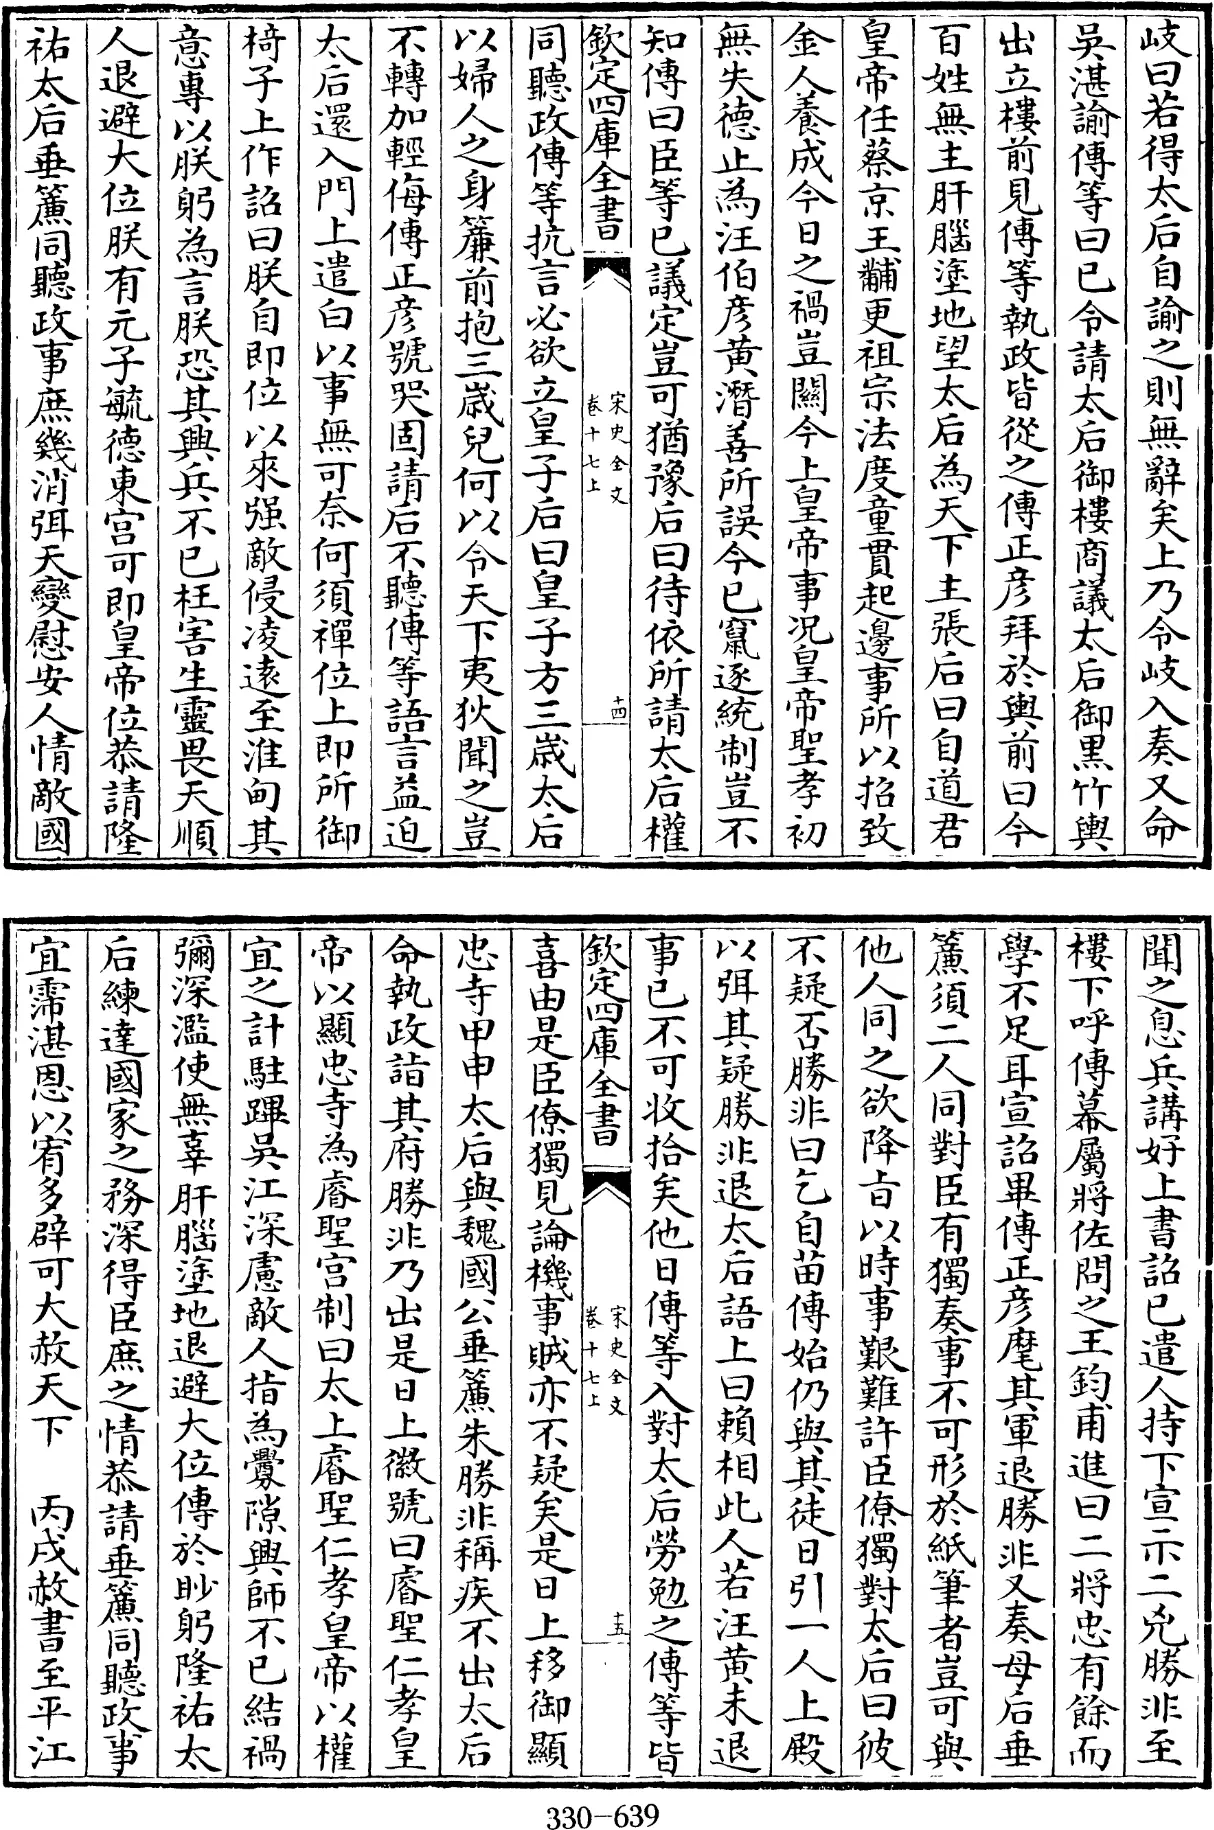 岐曰若得太后自諭之則無辭矣上乃令岐入奏又命
吳湛諭傅等曰已令請太后御樓商議太后御黑竹輿
出立樓前見傅等執政皆從之傅正彦拜於輿前曰今
百姓無主肝腦塗地望太后為天下主張后曰自道君
皇帝任蔡京王黼更祖宗法度童貫起邊事所以招致
金人養成今日之禍豈關今上皇帝事况皇帝聖孝初
無失德止為汪伯彦黄潛善所誤今已竄逐統制豈不
知傅曰臣等已議定豈可猶豫后曰待依所請太后權
欽定四庫全書
宋史全文
卷十七上
十四
同聽政傅等抗言必欲立皇子后曰皇子方三歲太后
以婦人之身簾前抱三歲兒何以令天下夷狄聞之豈
不轉加輕侮傅正彦號哭固請后不聽傅等語言益迫
太后還入門上遣白以事無可奈何須禪位上即所御
椅子上作詔曰朕自即位以來强敵侵凌遠至淮甸其
意專以朕躬為言朕恐其興兵不已枉害生靈畏天順
人退避大位朕有元子毓德東宫可即皇帝位恭請隆
祐太后垂簾同聽政事庶幾消弭天變慰安人情敵國
聞之息兵講好上書詔已遣人持下宣示二兇勝非至
樓下呼傅幕屬將佐問之王鈞甫進曰二將忠有餘而
學不足耳宣詔畢傅正彦麾其軍退勝非又奏母后垂
簾須二人同對臣有獨奏事不可形於紙筆者豈可與
他人同之欲降旨以時事艱難許臣僚獨對太后曰彼
不疑否勝非曰乞自苗傅始仍與其徒日引一人上殿
以弭其疑勝非退太后語上曰賴相此人若汪黄未退
事已不可收拾矣他日傅等入對太后勞勉之傅等皆
欽定四庫全書
宋史全文
卷十七上
十五
喜由是臣僚獨見論機事賊亦不疑矣是日上移御顯
忠寺甲申太后與魏國公垂簾朱勝非稱疾不出太后
命執政詣其府勝非乃出是日上徽號曰睿聖仁孝皇
帝以顯忠寺為睿聖宫制曰太上睿聖仁孝皇帝以權
宜之計駐蹕吳江深慮敵人指為釁隙興師不已結禍
彌深濫使無辜肝腦塗地退避大位傳於眇躬隆祐太
后練達國家之務深得臣庶之情恭請垂簾同聽政事
宜霈湛恩以宥多辟可大赦天下　丙戌赦書至平江
330-639